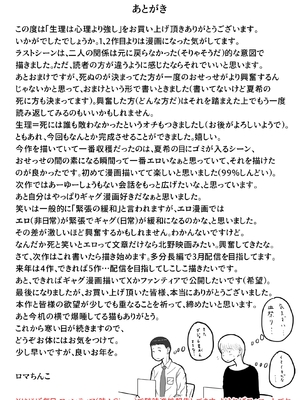 あとがき
この度は「生理は心理より強し」をお買い上げ頂きありがとうございます。
いかがでしたでしょうか。1,2作目よりは漫画になった気がしてます。
ラストシーンは、二人の関係は元に戻らなかった(そりゃそうだ)的な意図で
描きました。ただ、読者の方が違うように感じたならそれでいいと思います。
あとおまけですが、死ぬのが決まってた方が一度のおせっせがより興奮するん
じゃないかと思って、おまけという形で書いときました(書いてないけど夏希の
死に方も決まってます)。興奮した方(どんな方だ)はそれを踏まえた上でもう一度
読み返してみるのもいいかもしれません。
生理＝死には誰も敵わなかったというオチもつきましたし(お後がよろしいようで)。
ともあれ、今回もなんとか完成させることができました。嬉しい。
今作を描いていて一番収穫だったのは、夏希の目にゴミが入るシーン、
おせっせの間の素になる瞬間って一番エロいなぁと思っていて、それを描けた
のが良かったです。初めて漫画描いてて楽しいと思いました(99%しんどい)。
次作ではあーゆーしょうもない会話をもっと広げたいなあ、と思っています。
あと自分はやっぱりギャグ漫画好きだなあと思いました。
笑いは一般的に「緊張の緩和」と言われますが、エロ漫画では
エロ(非日常)が緊張でギャグ(日常)が緩和になるのかな、と思いました。
その差が激しいほど興奮するかもしれません。わかんないですけど。
なんだか死と笑いとエロって文章だけなら北野映画みたい。興奮してきたな。
さて、次作はこれ書いたら描き始めます。多分長編で3月配信を目指してます。
来年は4作、できれば5作…配信を目指してしこしこ描きたいです。
あと、できればギャグ漫画描いてXかファンティアで公開したいです(希望)。
最後になりましたが、お買い上げ頂いた皆様、本当にありがとうございました。
本作と皆様の欲望が少しでも重なることを祈って、締めたいと思います。
あと今机の横で爆睡してる猫もありがとう。
これから寒い日が続きますので、
どうぞお体にはお気をつけて。
少し早いですが、良いお年を。
ロマちんこ